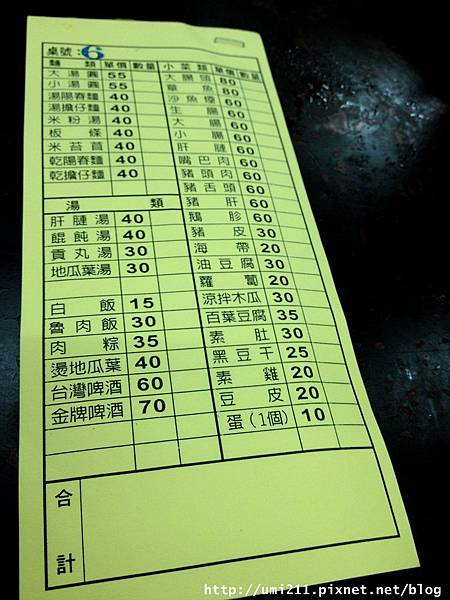 桌號：6
麵類 單價 數量
大湯圓 55
小湯圓 55
湯陽春麵 40
湯擔仔麵 40
米粉湯 40
板條 40
米苔苜 40
乾陽春麵 40
乾擔仔麵 40
湯類
肝腱湯 40
餛飩湯 40
貢丸湯 30
地瓜葉湯 30
白飯 15
魯肉飯 30
肉粽 35
燙地瓜葉 40
台灣啤酒 60
金牌啤酒 70
小菜類 單價 數量
大腸頭 80
章魚 80
沙魚煙 60
生腸 60
大腸 60
小腸 60
肝腱 60
嘴巴肉 60
豬頭肉 60
豬舌頭 60
豬肝 60
鵝胗 60
豬皮 30
海帶 20
油豆腐 30
蘿蔔 20
涼拌木瓜 30
百葉豆腐 35
素肚 30
黑豆干 25
素雞 20
豆皮 20
蛋(1個) 10
合計
http://umi211.pixnet.net/blog